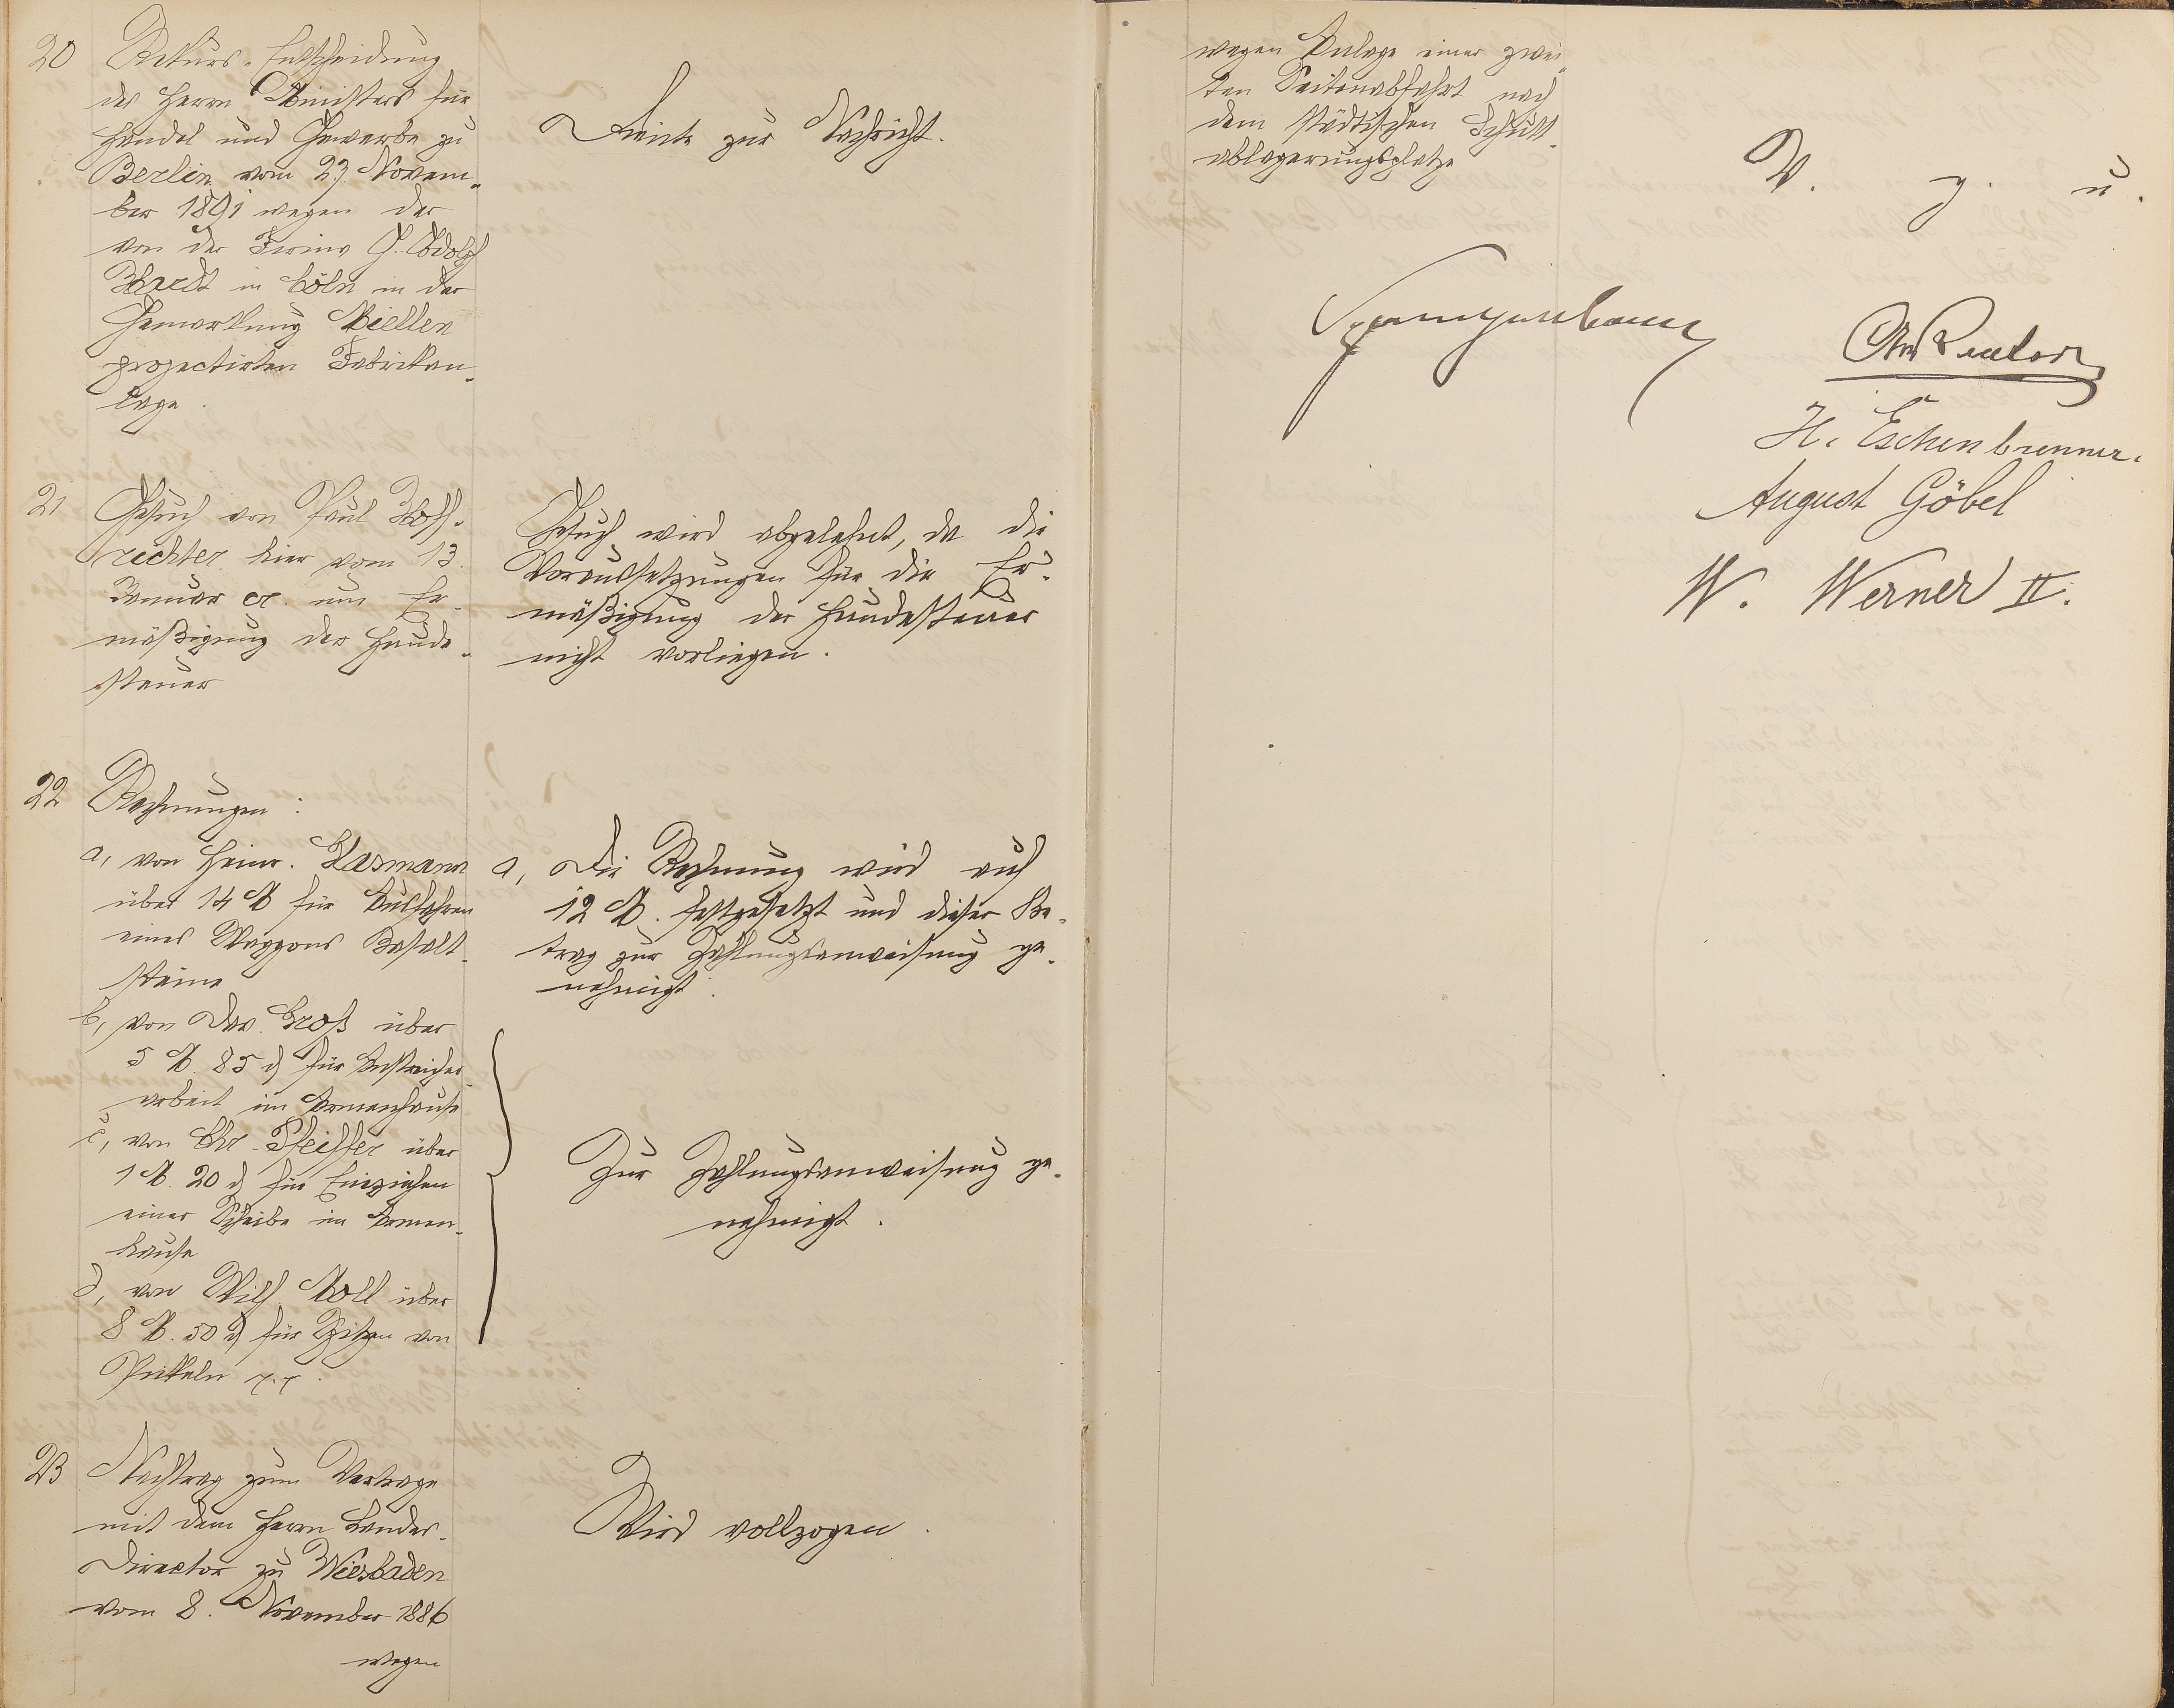 20 Rekurs-Entscheidung
des Herrn Ministers für
Handel und Gewerbe zu
Berlin vom 23. Novem-
ber 1891 wegen der
von der Firma G. Adolph
Hardt in Cöln in der
Gemarkung Miellen
projectirten Fabrikan-
lage.
Diente zur Nachricht.
21 Gesuch von Paul Hoff-
richter hier vom 13.
Januar cr. um Er-
mäßigung der Hunde-
steuer
Gesuch wird abgelehnt, da die
Voraussetzungen für die Er-
mäßigung der Hundesteuer
nicht vorliegen.
22 Rechnungen:
a, von Heinr. Kasmann
über 14 M für Ausfahren
eines Waggons Basalt-
steine
b, von Dav. Groß über
5 M. 85 d für Anstreicher-
arbeit im Armenhause
c, von Chr. Pfeiffer über
1 M. 20 d für Einziehen
einer Scheibe im Armen-
hause
d, von Wilh. Noll über
8 M. 50 d für Spitzen von
Pickeln
a, Die Rechnung wird auf
12 M. festgesetzt und dieser Be-
trag zur Zahlungsanweisung ge-
nehmigt.
Zur Zahlungsanweisung ge-
nehmigt.
23 Nachtrag zum Vertrage
mit dem Herrn Landes-
Director zu Wiesbaden
vom 8. November 1886
wegen
Wird vollzogen.
wegen Anlage einer zwei-
ten Seitenabfahrt nach
dem städtischen Schutt-
ablagerungsplatze
V. g. u.
H. Eschenbrenner.
August Göbel
W. Werner II.